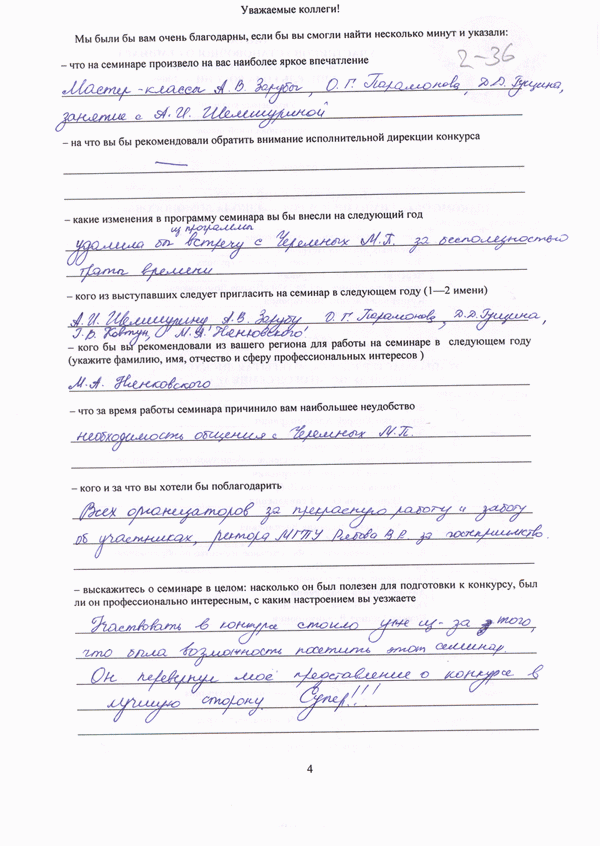 Уважаемые коллеги!
Мы были бы вам очень благодарны, если бы вы смогли найти несколько минут и указали:
2-36
– что на семинаре произвело на вас наиболее яркое впечатление
Мастер-классы А.В. Зарубы, О.Г. Парамонова, Д.Д. Гущина,
занятие с А.И. Шемшуриной
– на что вы бы рекомендовали обратить внимание исполнительной дирекции конкурса
—
– какие изменения в программу семинара вы бы внесли на следующий год
из программы
удалила бы встречу с Черемных М.П. за бесполезностью
траты времени
– кого из выступавших следует пригласить на семинар в следующем году (1—2 имени)
А.И. Шемшурину, А.В. Зарубу, О.Г. Парамонова, Д.Д. Гущина,
Г.В. Ковтун, М.А. Нянковского
– кого бы вы рекомендовали из вашего региона для работы на семинаре в следующем году
(укажите фамилию, имя, отчество и сферу профессиональных интересов )
М.А. Нянковского
– что за время работы семинара причинило вам наибольшее неудобство
необходимость общения с Черемных М.П.
– кого и за что вы хотели бы поблагодарить
Всех организаторов за прекрасную работу и заботу
об участниках, ректора МГПУ Рябова В.В. за гостеприимство.
– выскажитесь о семинаре в целом: насколько он был полезен для подготовки к конкурсу, был
ли он профессионально интересным, с каким настроением вы уезжаете
Участвовать в конкурсе стоило уже из-за того,
что была возможность посетить этот семинар.
Он перевернул моё представление о конкурсе в
лучшую сторону. Супер!!!
4